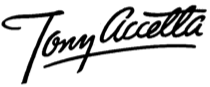 Tony Accetta